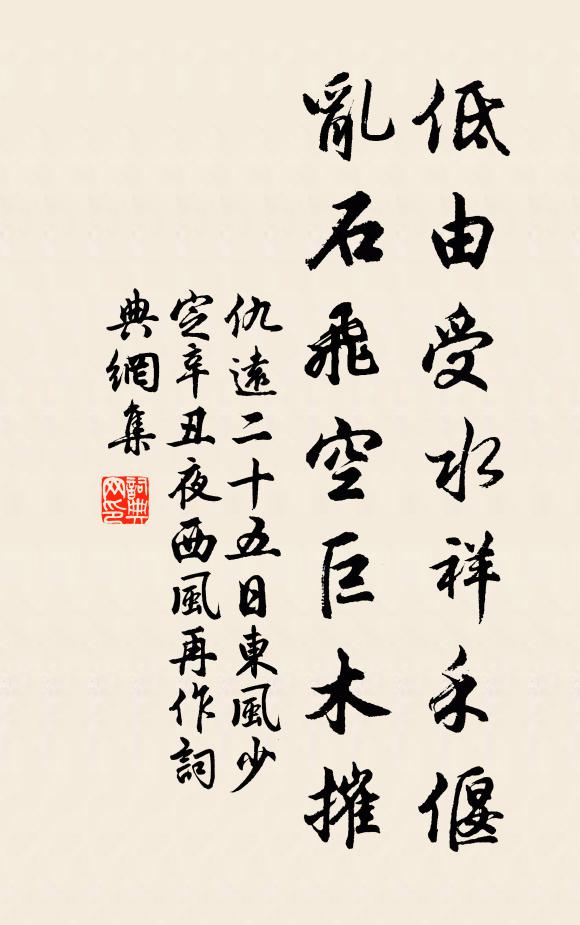 低由受水祥禾偃
亂石飛空巨木摧
仇遠二十五日東風少
定辛丑夜西風再作詞
典網集
詞典網印